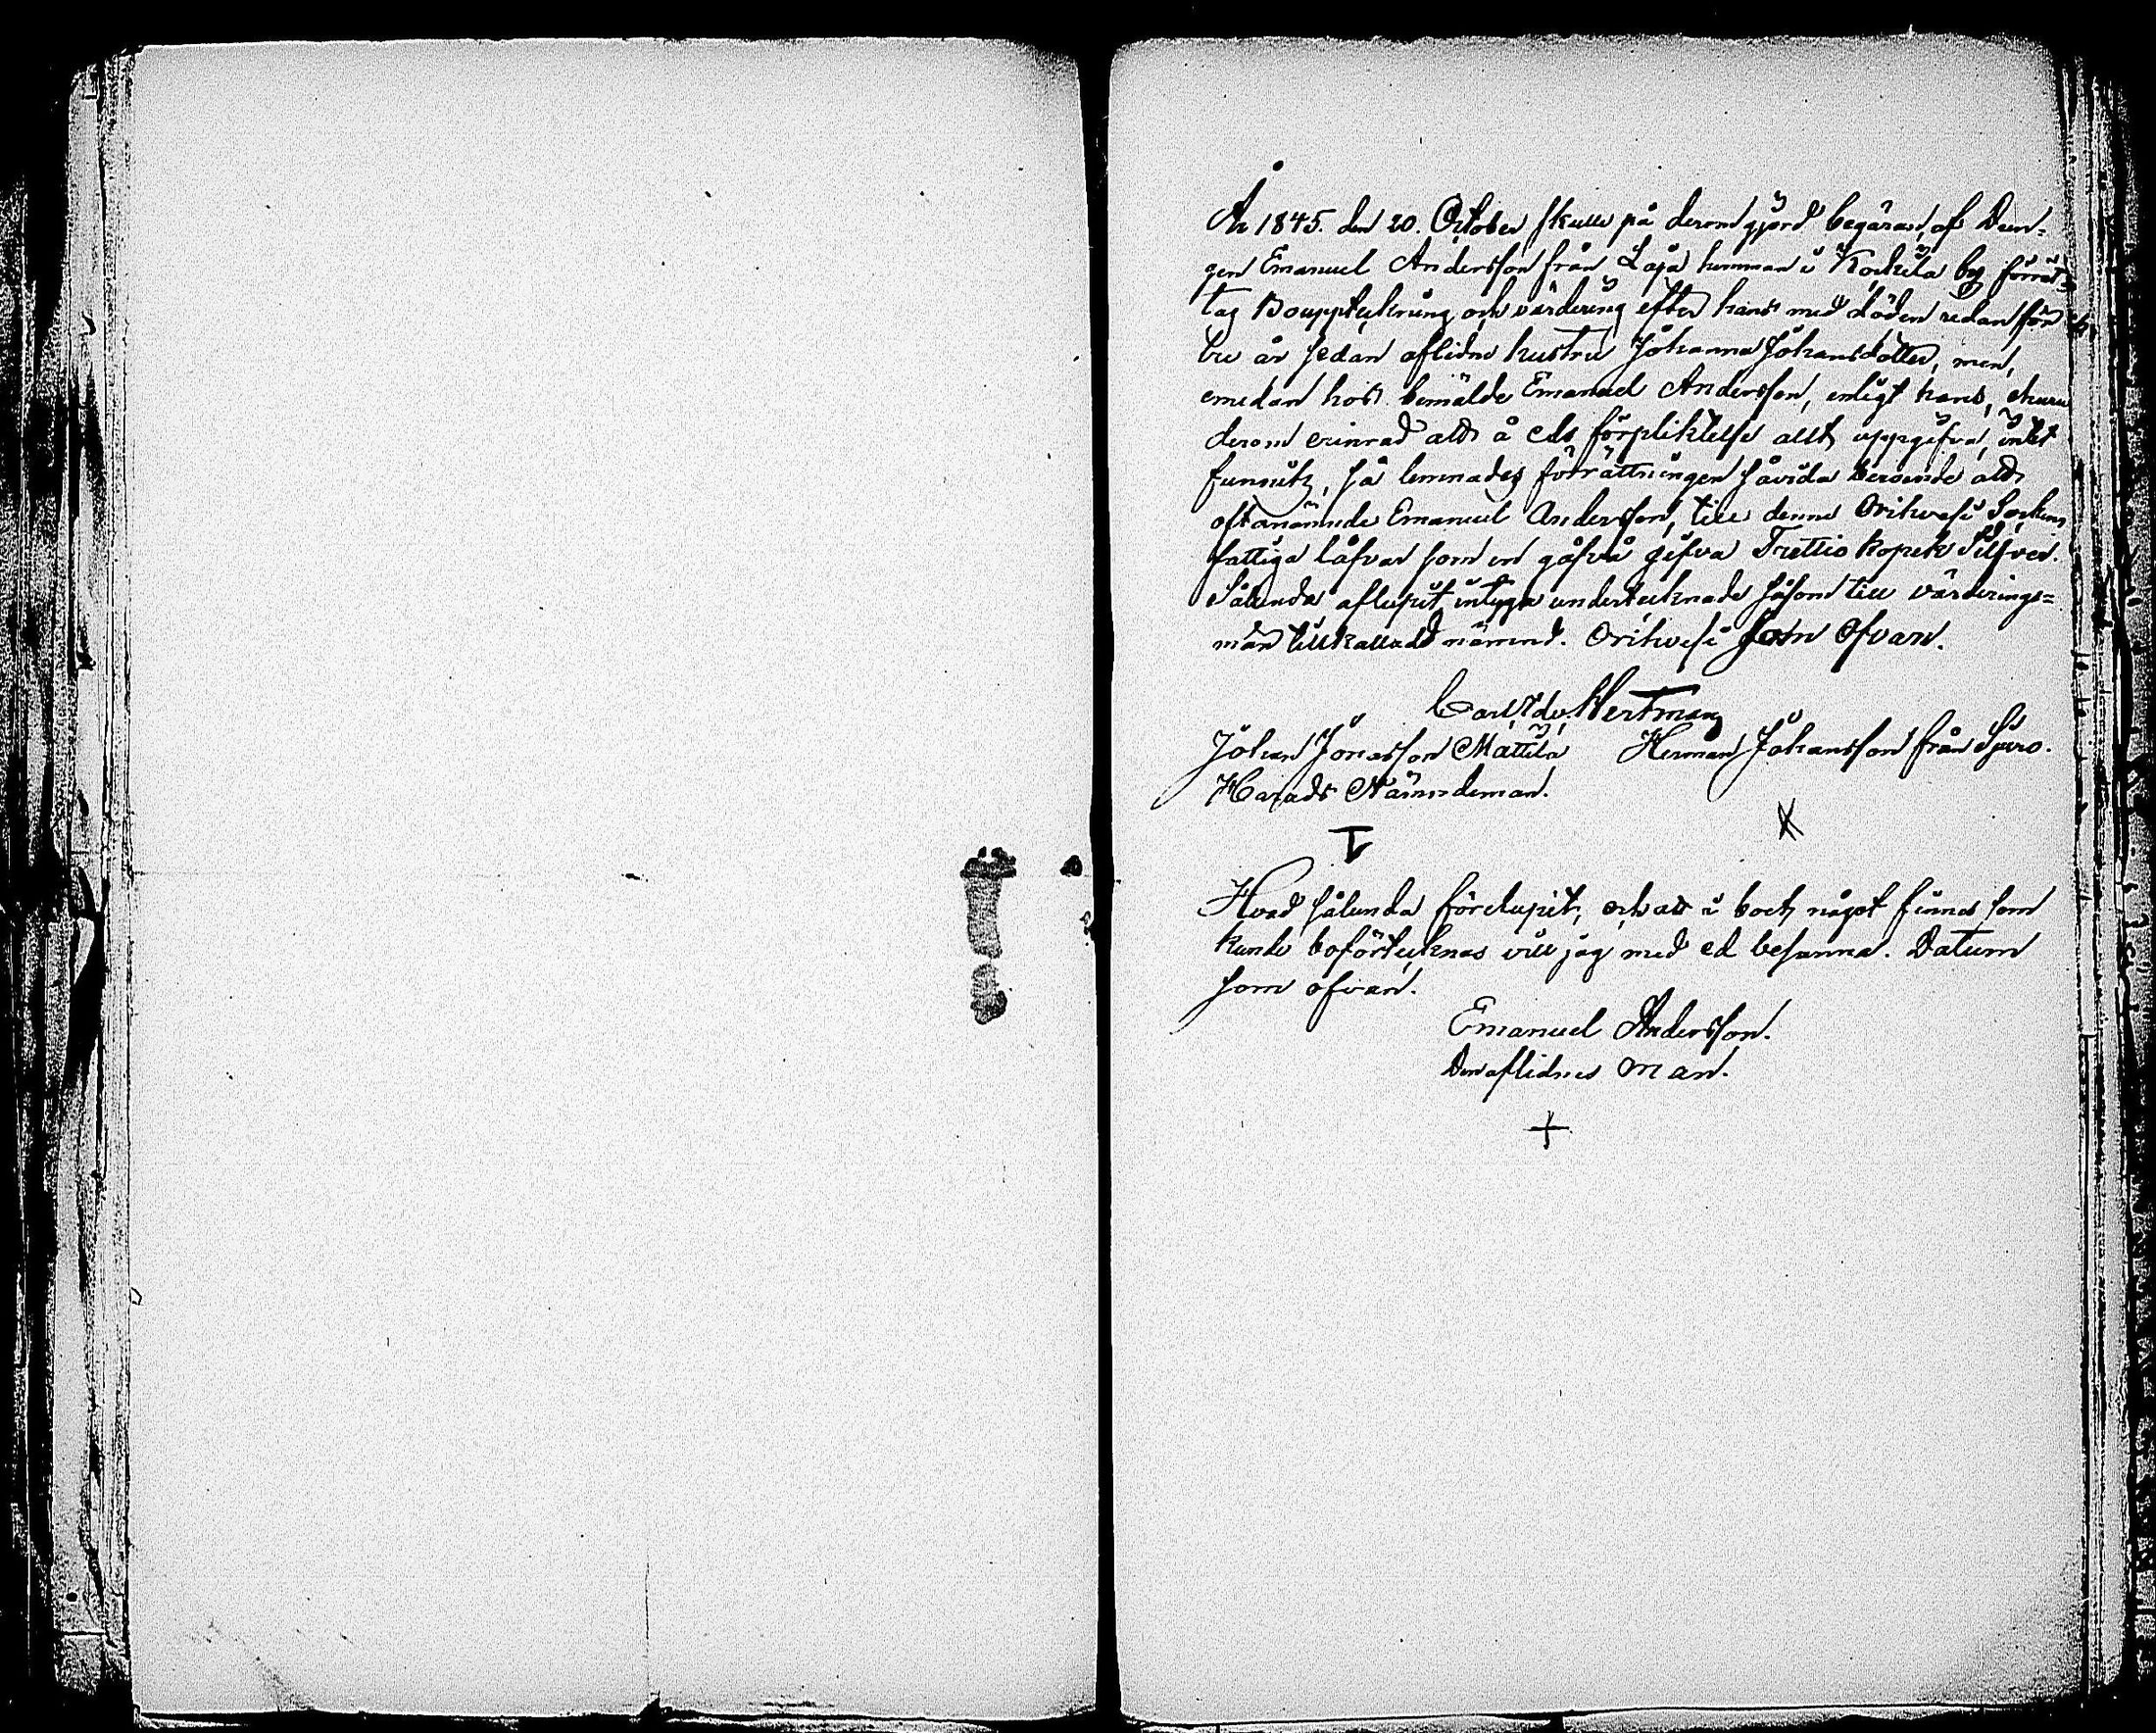 År 1845. den 20. October skulle på derom gjord begäran, af Dren-
gen Emanuel Andersson från Laja hemman i Korkila by förrät-
tas Bouppteckning och värdering efter hans med döden redan för
tre år sedan aflidne hustru Johanna Johansdotter, men,
emedan hos bemälde Emanuel Andersson, enligt hans, ehuru
derom erinrad att å eds förpliktelse allt uppgifva, intet
funnits, så lemnades förrättningen såvida beroende att
oftanämnde Emanuel Andersson, till denne Orihvesi Sockens
fattiga låfvar som en gåfva gifva Trettio kopek Silfver.
Sålunda aflupit intyga undertecknade såsom till värderings=
män tillkallade nämnd. Orihvesi som ofvan.
Carl Hertman
Johan Jonasson Mattila Herman Johansson från Spiro.
Härads Nämndeman.
Hvad sålunda förelupit, och att i boet något finnas som
kunde boförtecknas vill jag med ed besanna. Datum
som ofvan.
Emanuel Andersson.
Den aflidnes man.